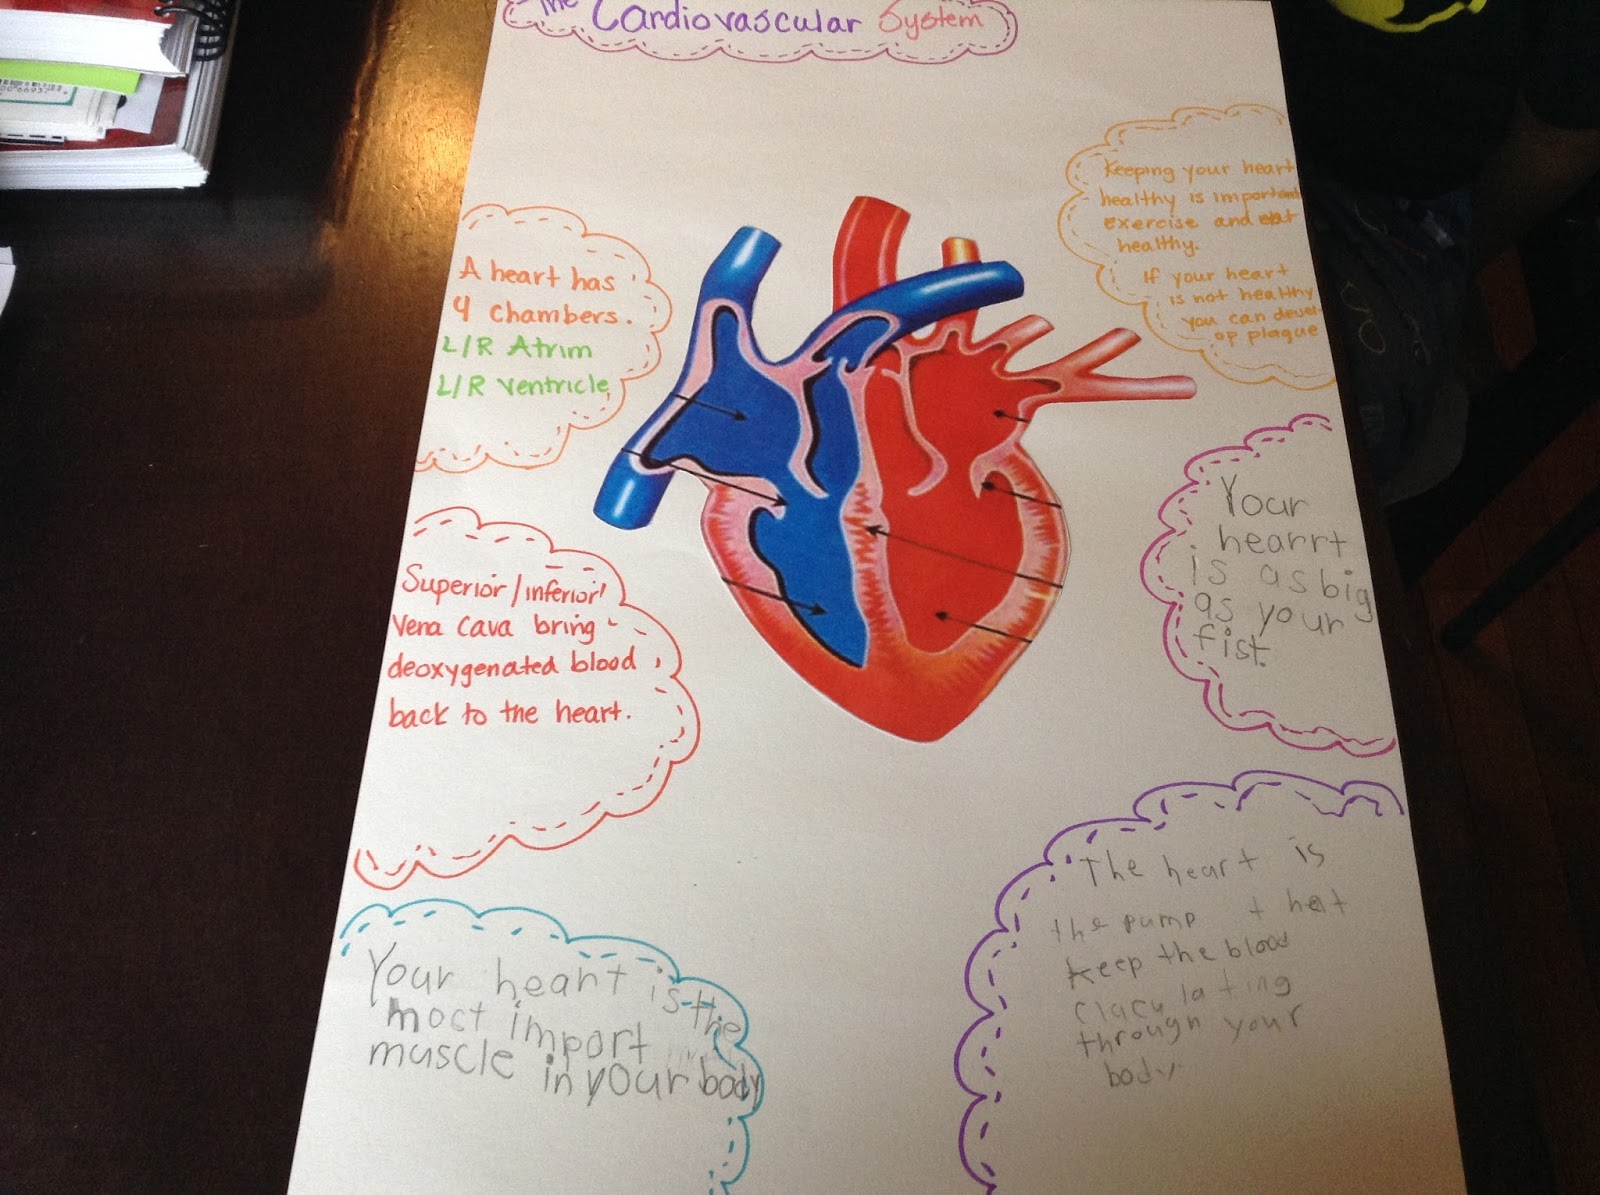 The Cardiovascular System
A heart has
4 chambers.
L/R Atrim
L/R ventricle
Superior/inferior
Vena Cava bring
deoxygenated blood
back to the heart.
Your heart is the
most import
muscle in your body
Keeping your heart
healthy is important
exercise and eat
healthy.
If your heart
is not healthy
you can devel-
op plaque
Your
hearrt
is as big
as your
fist.
The heart is
the pump that
keep the blood
clacu lating
through your
body.